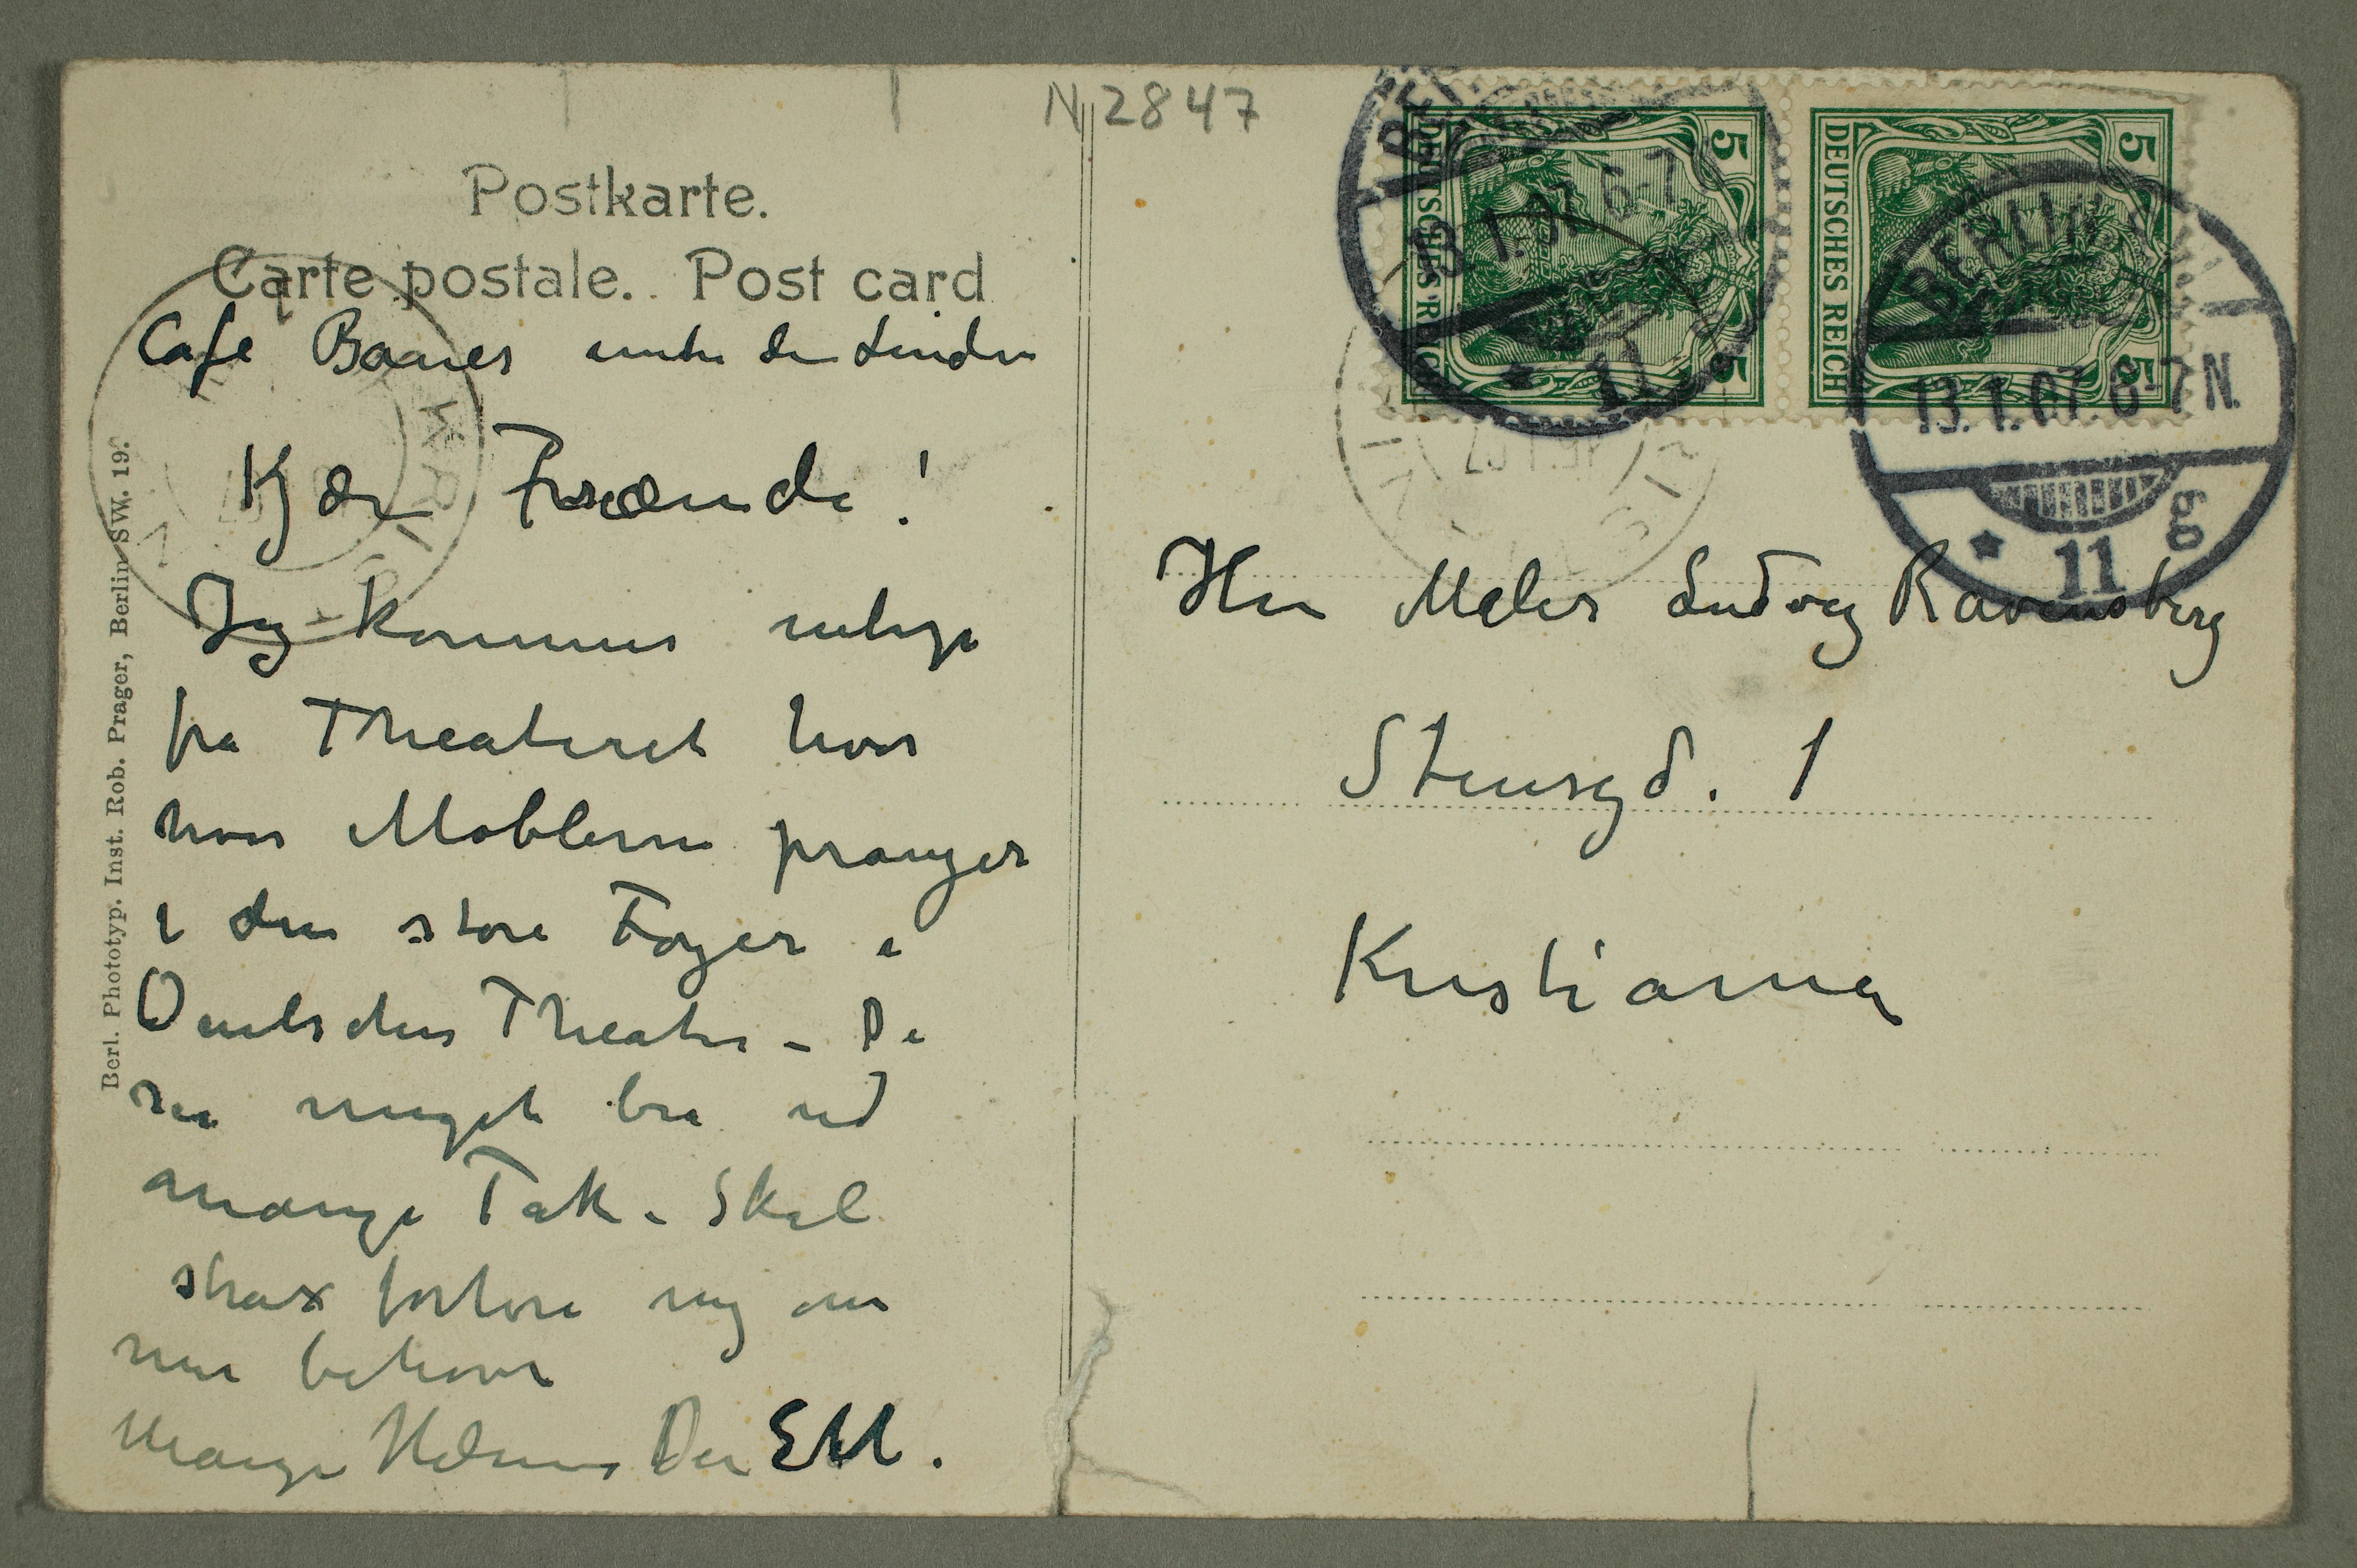 N 2847
Postkarte.
Carte postale. Post card
Cafe Bauer unter den Linden
Kjære Frænde!
Jeg kommer netop
fra Theateret hvor
hvor Møblerne pranger
i den store Foyer i
Deutsches Theater – De
ser meget bra ud
mange Tak – Skal
strax fortore mig om
mer behøves
Mange Hilsener Din EM.
Berl. Phototyp. Inst. Rob. Prager, Berlin SW. 19.
DEUTSCHES REICH
5
5
DEUTSCHES REICH
5
5
13.1.07. 6-7
11
BERLIN
13.1.07. 6-7 N.
11
Herr Maler Ludvig Ravensberg
Stensgd. 1
Kristiania